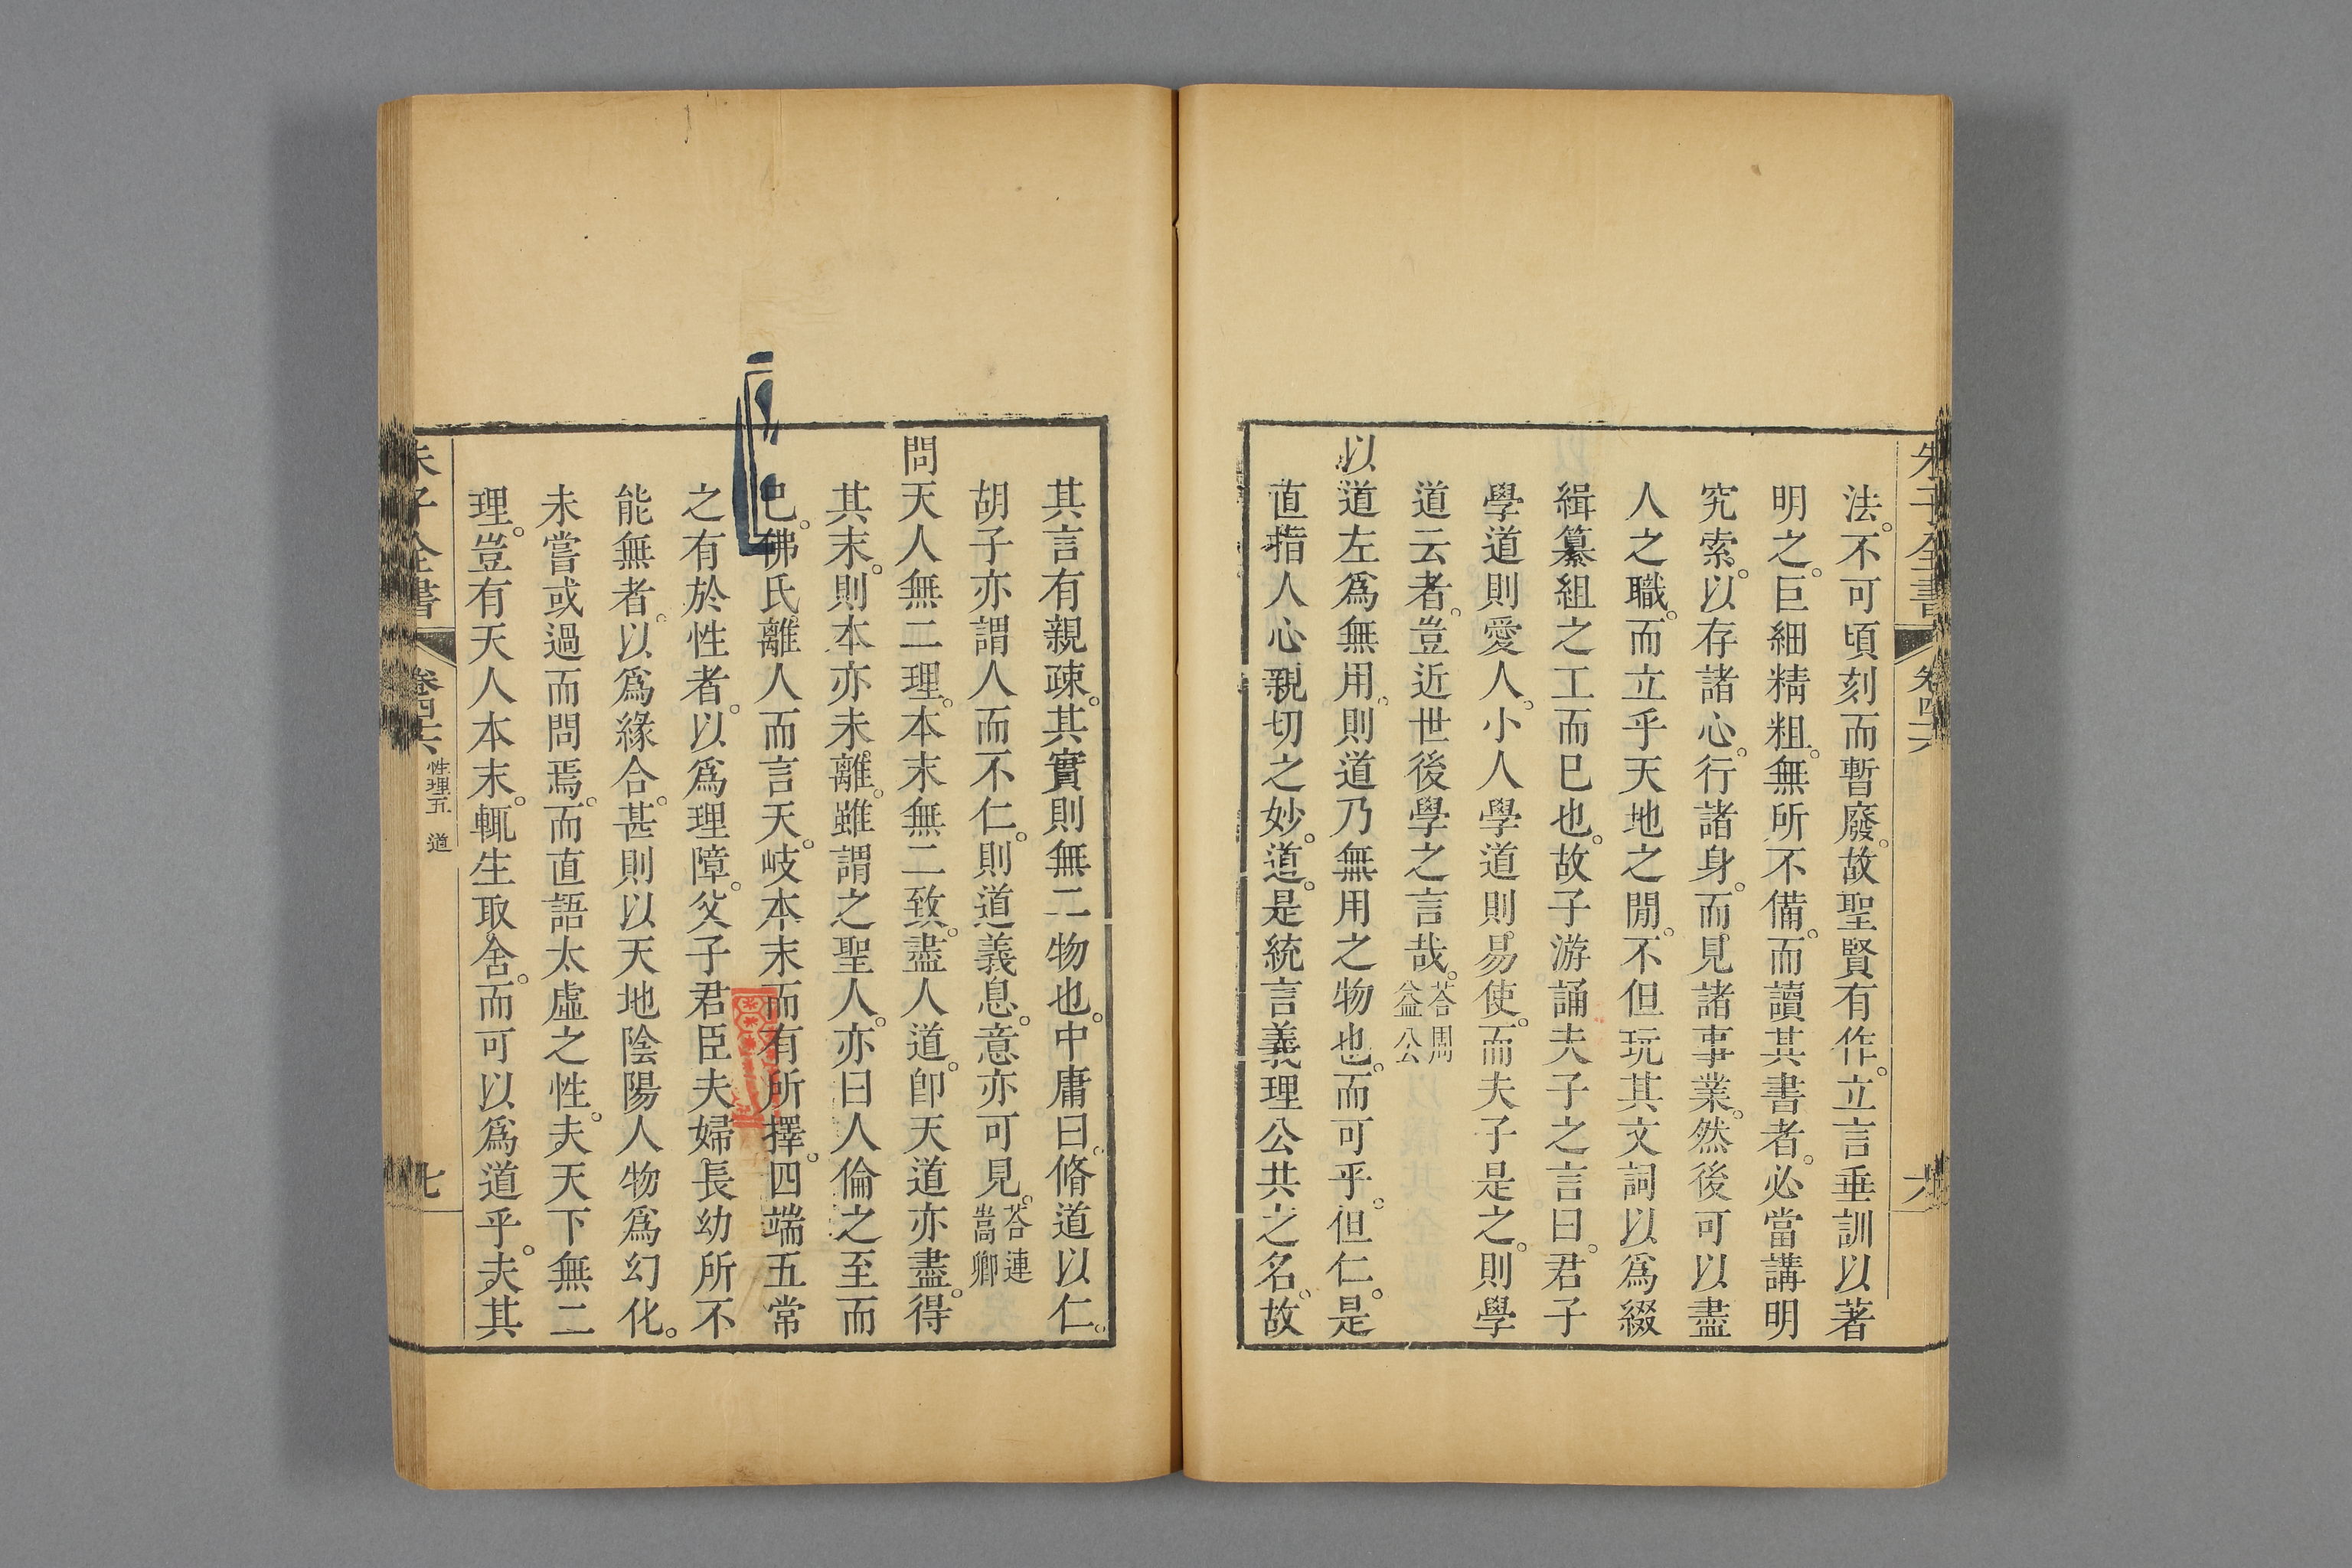 朱子全書 卷四六 六
法。不可頃刻而暫廢。故聖賢有作。立言垂訓以著
明之。巨細精粗。無所不備。而讀其書者。必當講明
究索。以存諸心。行諸身。而見諸事業。然後可以盡
人之職。而立乎天地之閒。不但玩其文詞以爲綴
緝纂組之工而已也。故子游誦夫子之言曰。君子
學道則愛人。小人學道則易使。而夫子是之。則學
道云者。豈近世後學之言哉。答周益公
以道左爲無用。則道乃無用之物也。而可乎。但仁。是
直指人心親切之妙。道。是統言義理公共之名。故
其言有親疎。其實則無二物也。中庸曰。脩道以仁。
胡子亦謂人而不仁。則道義息。意亦可見。答連嵩卿
問天人無二理。本末無二致。盡人道。卽天道亦盡。得
其末。則本亦未離。雖謂之聖人。亦曰人倫之至而
已。佛氏離人而言天。岐本末而有所擇。四端五常
之有於性者。以爲理障。父子君臣夫婦長幼所不
能無者。以爲緣合。甚則以天地陰陽人物爲幻化。
未嘗或過而問焉。而直語太虛之性。夫天下無二
理。豈有天人本末。輒生取舍。而可以爲道乎。夫其
朱子全書 卷四六 性理五 道 七